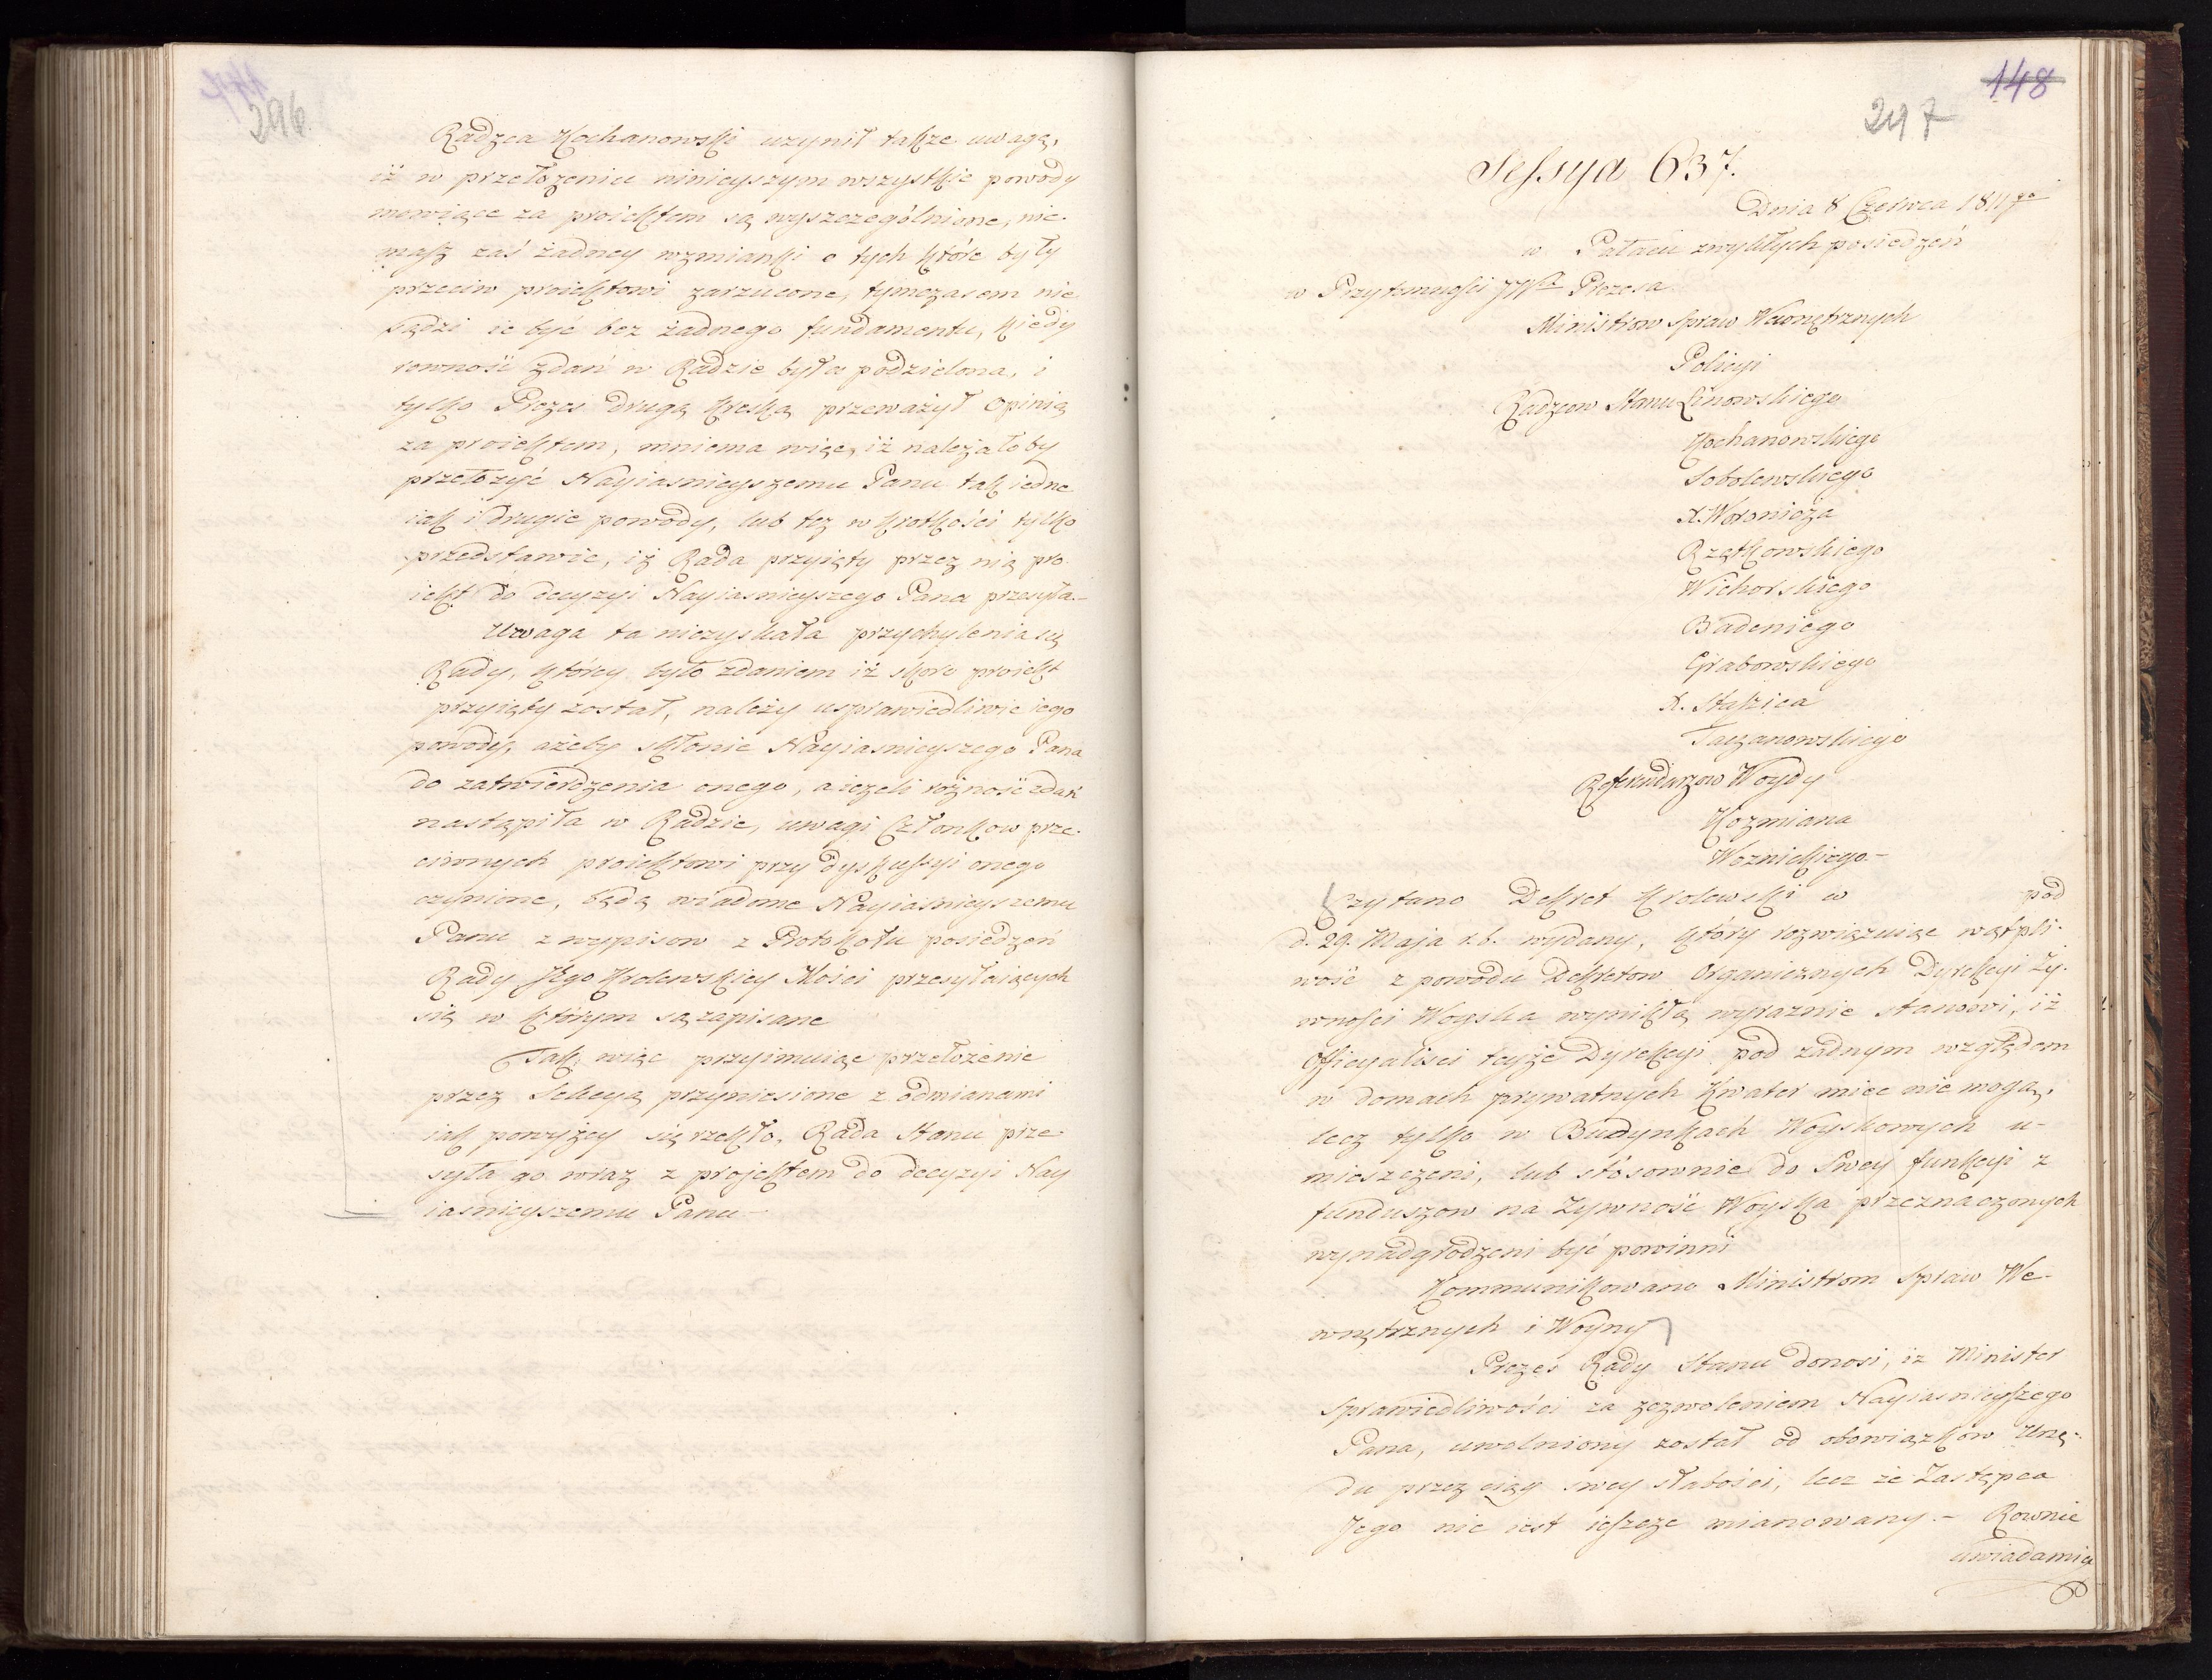 296
Radzca Kochanowski uzynił także uwagę,
iż w przełożeniu ninieyszym wszystkie powody
mowiące za proiektem są wyszczególnione, nie-
masz zaś żadney wzmianki o tych które były
przeciw proiektowi zarzucone, tymczasem nie
sądzi ie być bez żadnego fundamentu, kiedy
rowność zdań w Radzie była podzielona, i
tylko Prezes drugą kreską przeważył opinią
za proiektem, mniema więc, iż należałoby
przełożyć Nayiasnieyszemu Panu tak iedne
iak i drugie powody, lub tez w krotkości tylko
przedstawic, iż Rada przyięty przez nią pro-
iekt do decyzyi Nayiasnieyszego Pana przesyła.-
Uwaga ta niezyskała przychylenia się
Rady, którey było zdaniem iż skoro proiekt
przyięty został, należy usprawiedliwic iego
powody, ażeby skłonic Nayiasnieyszego Pana
do zatwierdzenia onego, a ieżeli rożność zdań
nastąpiła w Radzie, uwagi Członkow prze-
ciwnych proiektowi przy dyskussyi onego
czynione, będą wiadome Nayiaśnieyszemu
Panu z wypisow z Protokołu posiedzeń
Rady Jego Krolewskiey Mości przesyłaiących
się w którym są zapisane
Tak więc przyimuiąc przełożenie
przez Sekcyą przyniesione z odmianami
iak powyżey się rzekło, Rada Stanu prze-
syła go wraz z projektem do decyzyi Nay
iasnieyszemu Panu-
148
297
Sessya 637.
Dnia 8 Czerwca 1811go
w Pałacu zwykłych posiedzeń
w Przytomności JWo Prezesa
Ministrow Spraw Wewnętrznych
Policyi
Radzcow Stanu Linowskiego
Kochanowskiego
Sobolewskiego
X. Woronicza
Rzątkowskiego
Wichorskiego
Badeniego
Grabowskiego
X. Staszica
Taczanowskiego
Referendarzow Woydy
Kozmiana
Woznickiego.-
Czytano Dekret Krolewski w pod
d. 29. Maja r.b. wydany, który rozwiązuiąc wątpli-
wość z powodu Dekretow Organicznych Dyrekcyi Ży-
wności Woyska wynikłą wyraznie stanowi, iż
Officyaliści teyże Dyrekcyi pod żadnym względem
w domach prywatnych Kwater miec nie mogą,
lecz tylko w Budynkach Woyskowych u-
mieszczeni, lub stósownie do Swey funkcyi z
funduszow na Żywność Woyska przeznaczonych
wynadgrodzeni być powinni
Kommunikowano Ministrom Spraw We-
wnętrznych i Woyny
Prezes Rady Stanu donosi, iż Minister
Sprawiedliwości za zezwoleniem Nayiasnieyszego
Pana, uwolniony został od obowiązkow Urzę-
du przez ciąg swey słabości, lecz że Zastępca
Jego nie iest ieszcze mianowany.- Rownie
uwiadamia